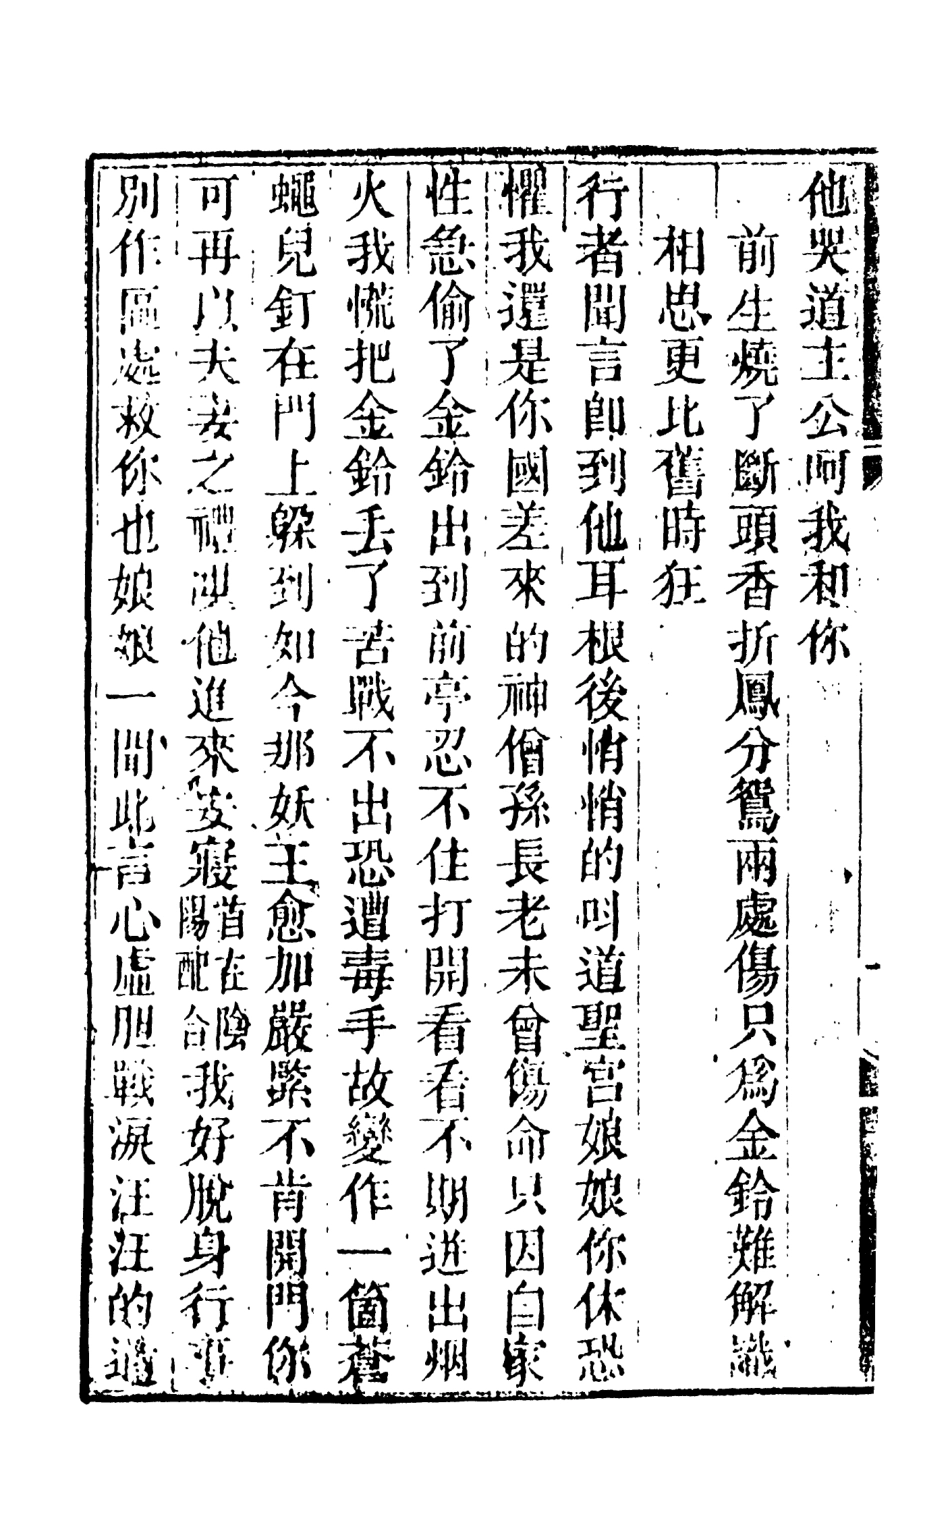 他哭道主公呵我和你
前生燒了斷頭香折鳳分鴛兩處傷只爲金鈴難解識
相思更比舊時狂
行者聞言卽到他耳根後悄悄的叫道聖宮娘娘你休恐
懼我還是你國差來的神僧孫長老未曾傷命只因自家
性急偷了金鈴出到前亭忍不住打開看看不期迸出烟
火我慌把金鈴丢了苦戰不出恐遭毒手故變作一箇蒼
蠅兒釘在門上躲到如今那妖王愈加嚴緊不肯開門你
可再以夫妻之禮哄他進來安寢首在陰陽配合我好脫身行事
別作區處救你也娘娘一聞此言心虛胆戰淚汪汪的